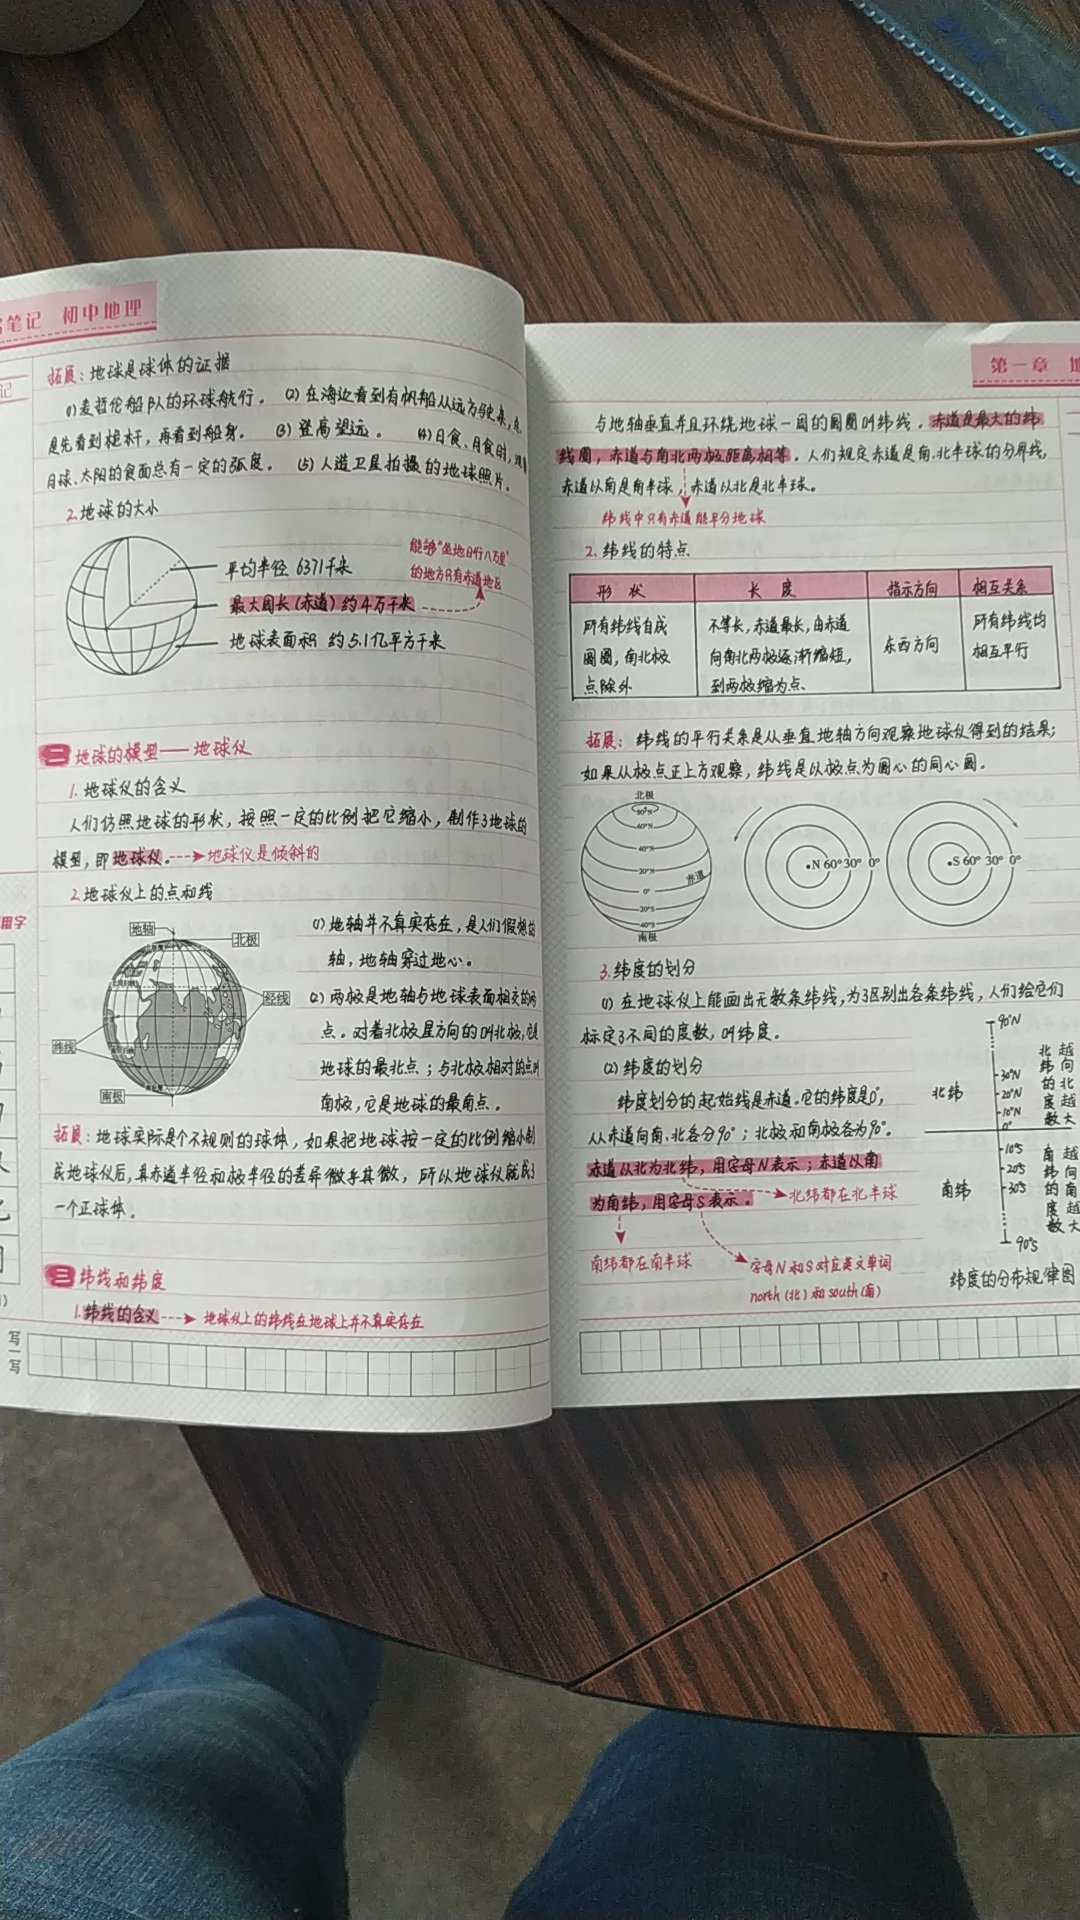 笔记 初中地理
记
拓展：地球是球体的证据
(1)麦哲伦船队的环球航行。 (2)在海边看到有帆船从远方驶来，总
是先看到桅杆，再看到船身。 (3)登高望远。 (4)日食、月食时，
月球、太阳的食面总有一定的弧度。 (5)人造卫星拍摄的地球照片。
2.地球的大小
能够“坐地日行八万里”
的地方只有赤道地区
平均半径 6371千米
最大周长(赤道)约4万千米
地球表面积 约5.1亿平方千米
二 地球的模型——地球仪
1.地球仪的含义
人们仿照地球的形状，按照一定的比例把它缩小，制作了地球的
模型，即地球仪。 地球仪是倾斜的
2.地球仪上的点和线
地轴
北极
经线
纬线
南极
(1)地轴并不真实存在，是人们假想的
轴，地轴穿过地心。
(2)两极是地轴与地球表面相交的两
点。对着北极星方向的叫北极，它是
地球的最北点；与北极相对的点叫
南极，它是地球的最南点。
拓展：地球实际是个不规则的球体，如果把地球按一定的比例缩小制
成地球仪后，其赤道半径和极半径的差异微乎其微，所以地球仪就成了
一个正球体。
三 纬线和纬度
1.纬线的含义 地球仪上的纬线在地球上并不真实存在
用字
写一写
第一章 地
与地轴垂直并且环绕地球一周的圆圈叫纬线。赤道是最大的纬
线圈，赤道与南北两极距离相等。人们规定赤道是南、北半球的分界线，
赤道以南是南半球，赤道以北是北半球。
纬线中只有赤道能平分地球
2.纬线的特点
形 状 长 度 指示方向 相互关系
所有纬线自成圆圈，南北极点除外
不等长，赤道最长，由赤道向南北两极逐渐缩短，到两极缩为点
东西方向
所有纬线均相互平行
拓展：纬线的平行关系是从垂直地轴方向观察地球仪得到的结果；
如果从极点正上方观察，纬线是以极点为圆心的同心圆。
北极
80°N
60°N
40°N
20°N
赤道
0°
20°S
40°S
南极
N 60° 30° 0°
S 60° 30° 0°
3.纬度的划分
(1)在地球仪上能画出无数条纬线，为了区别出各条纬线，人们给它们
标定了不同的度数，叫纬度。
(2)纬度的划分
纬度划分的起始线是赤道。它的纬度是0°，
从赤道向南、北各分90°；北极和南极各为90°。
赤道以北为北纬，用字母N表示；赤道以南
为南纬，用字母S表示。 北纬都在北半球
南纬都在南半球
字母N和S对应英文单词
north(北)和south(南)
90°N
30°N
20°N
10°N
0°
10°S
20°S
30°S
90°S
北纬
南纬
北纬的度数
越向北越大
南纬的度数
越向南越大
纬度的分布规律图